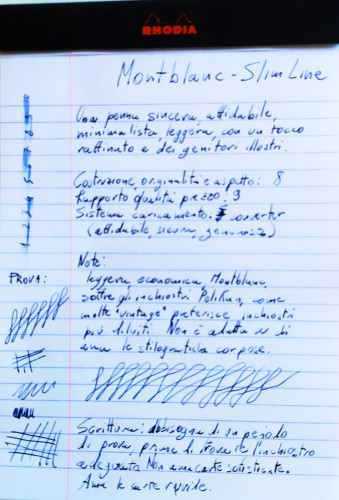 RHODIA
Montblanc - Slim Line
Una penna sincera, affidabile,
minimalista, leggera, con un tocco
raffinato e dei genitori illustri.
Costruzione, originalità e aspetto: 8
Rapporto qualità prezzo: 9
Sistema caricamento: convertor
(affidabile, sicura, generosa)
Note:
PROVA:
leggera, economica, Montblanc,
soffre gli inchiostri Pelikan, come
molte "vintage" preferisce inchiostri
più diluiti. Non è adatta a chi
ama le stilografiche corpose.
Scrittura: abbisogna di un periodo
di prova, prima di trovare l'inchiostro
adeguato. Non ama carte
Ama le carte ruvide.